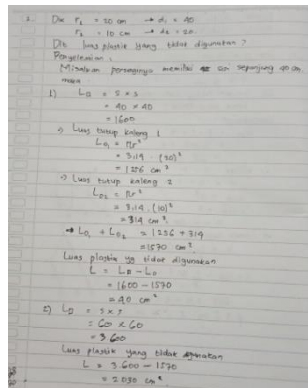 2. Dik r₁ = 20 cm → d₁ = 40
r₂ = 10 cm → d₂ = 20.
Dit luas plastik yang tidak digunakan ?
Penyelesaian :
Misalkan perseginya memiliki sisi sepanjang 40 cm
maka
1) L□ = s × s
= 40 × 40
= 1600
→ Luas tutup kaleng 1
L○₁ = πr²
= 3,14 . (20)²
= 1256 cm²
→ Luas tutup kaleng 2
L○₂ = πr²
= 3,14 . (10)²
= 314 cm²
→ L○₁ + L○₂ = 1256 + 314
= 1570 cm²
Luas plastik yg tidak digunakan
L = L□ - L○
= 1600 - 1570
= 40 cm²
2) L□ = s × s
= 60 × 60
= 3.600
Luas plastik yang tidak digunakan
L = 3.600 - 1570
= 2.030 cm²